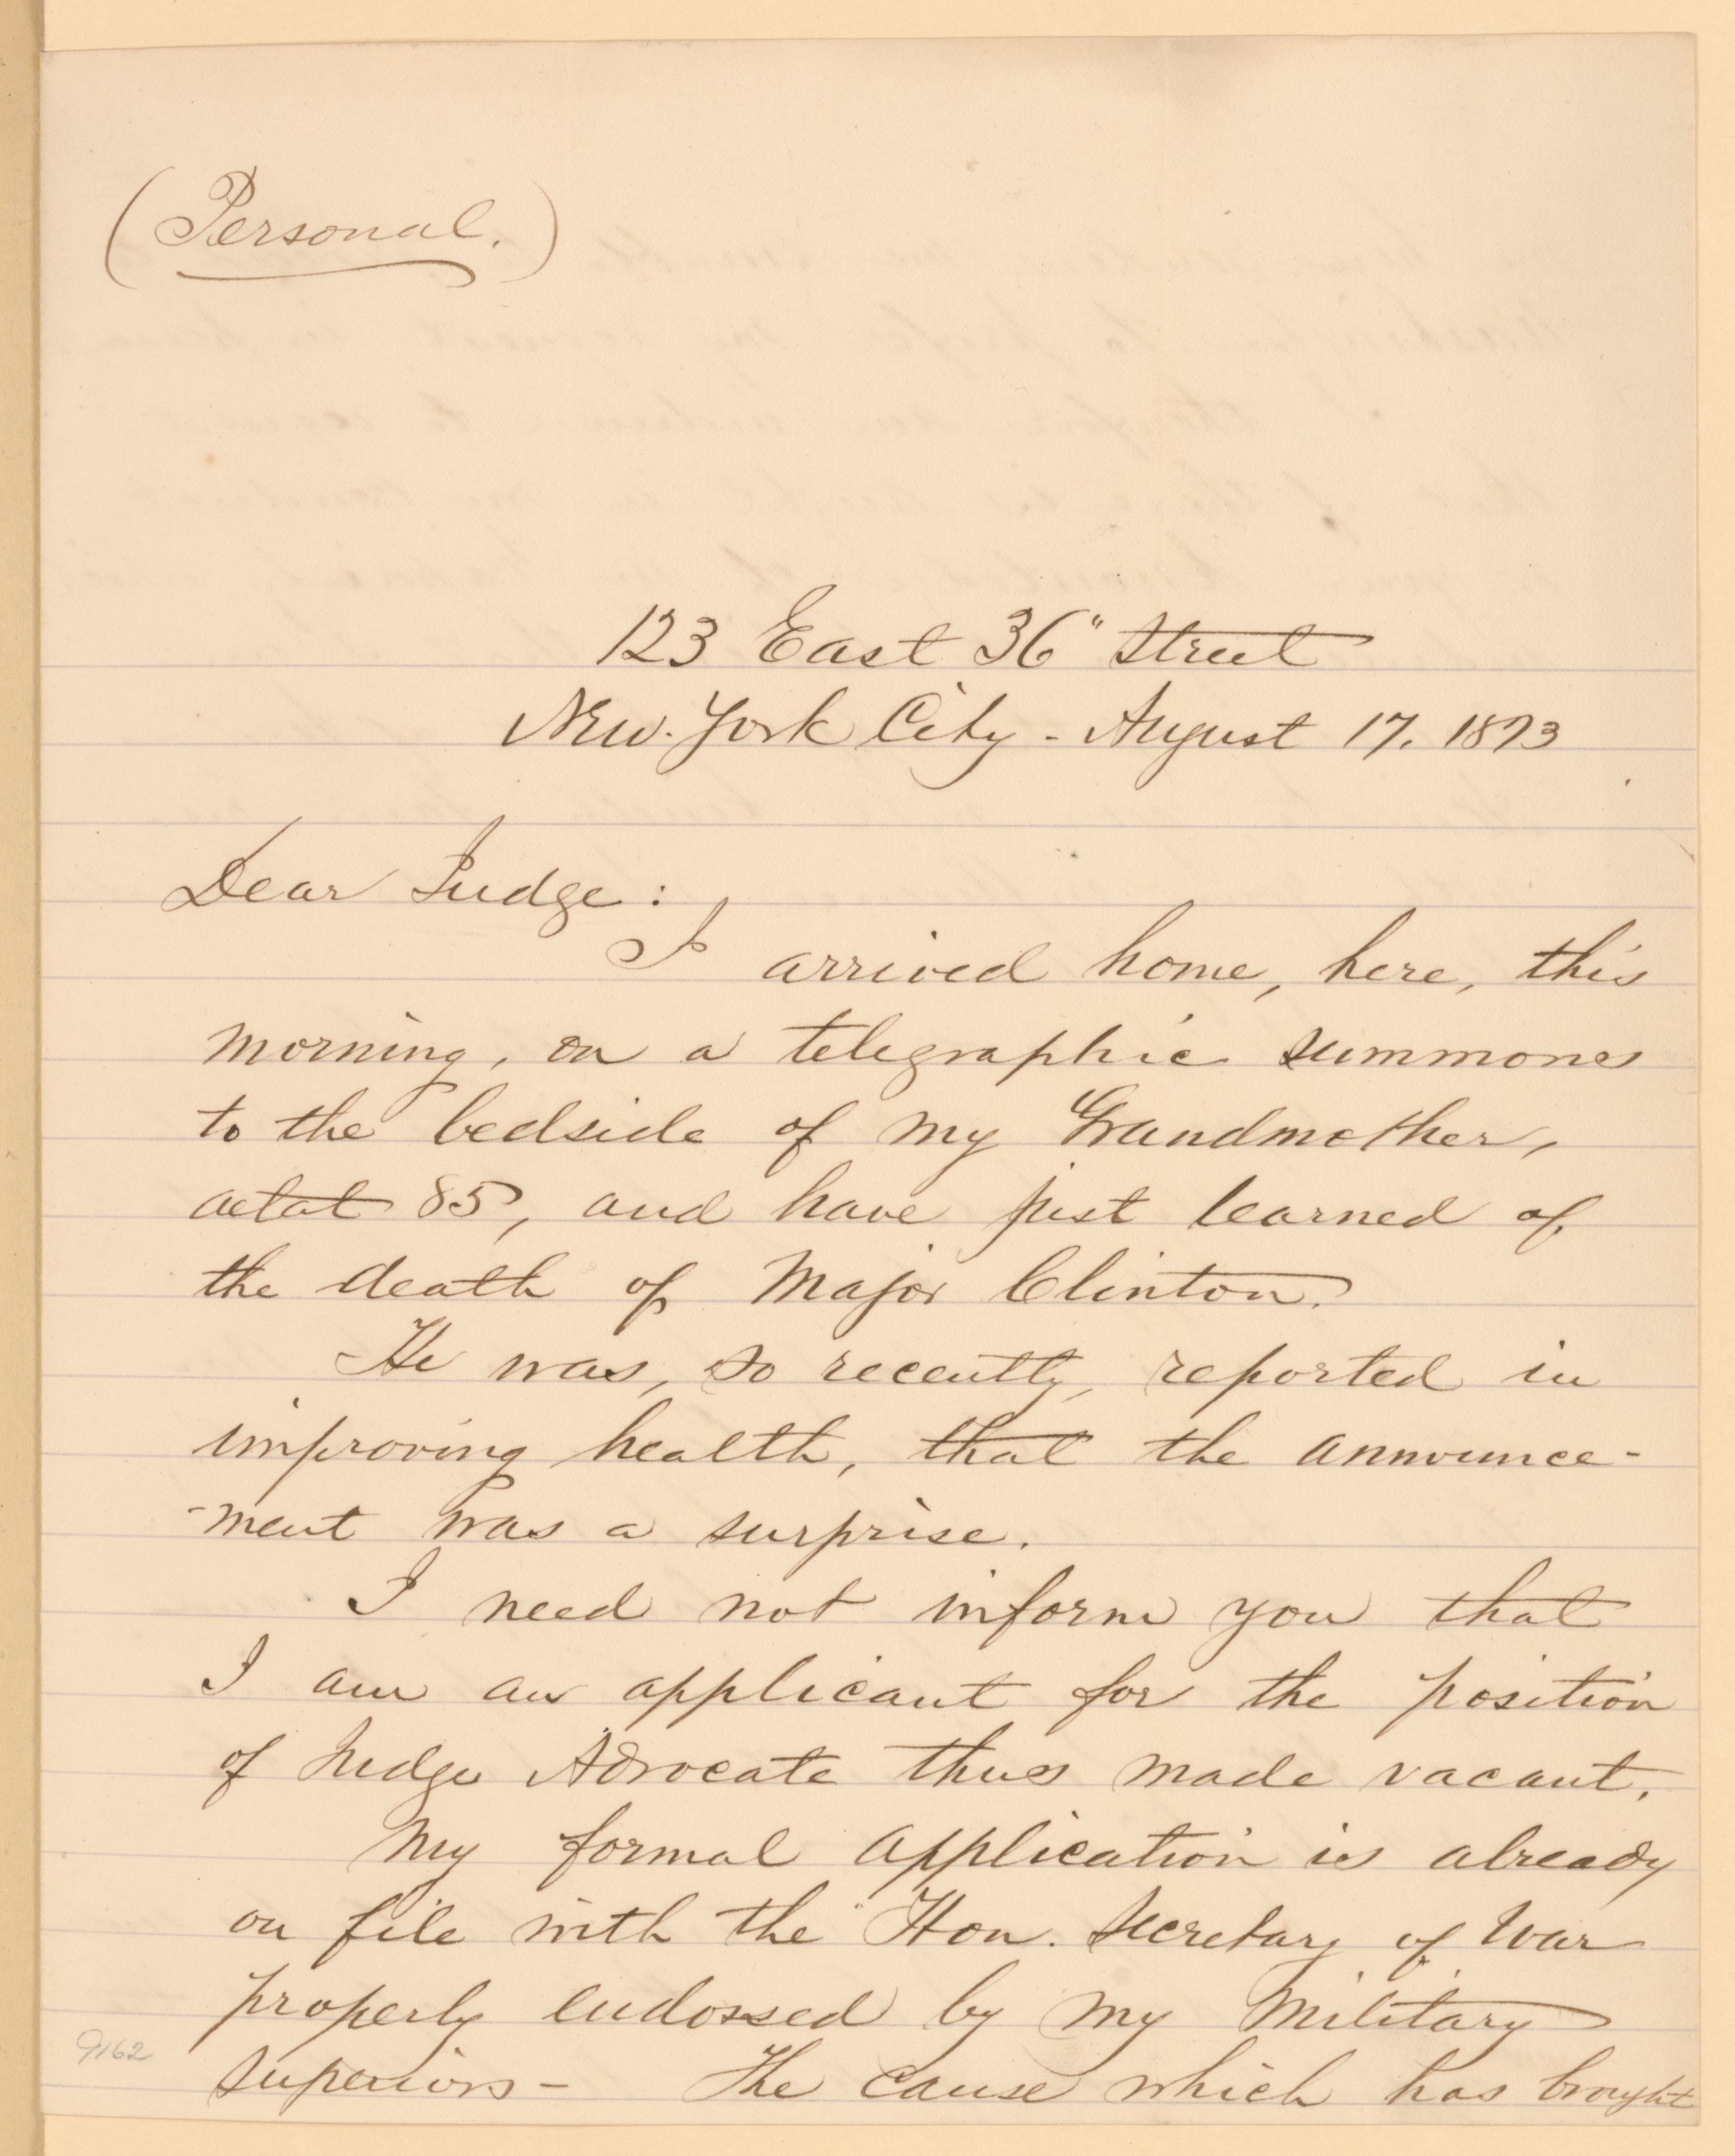 (Personal.)
123 East 36" Street
New-York City - August 17. 1873
Dear Judge:
I arrived home, here, this
morning, on a telegraphic summons
to the bedside of my Grandmother,
aetat 85, and have just learned of
the death of Major Clinton.
He was, so recently, reported in
improving health, that the announce-
-ment was a surprise.
I need not inform you that
I am an applicant for the position
of Judge Advocate thus made vacant.
My formal application is already
on file with the Hon. Secretary of War
properly endossed by my Military
superiors - The cause which has brought
9162